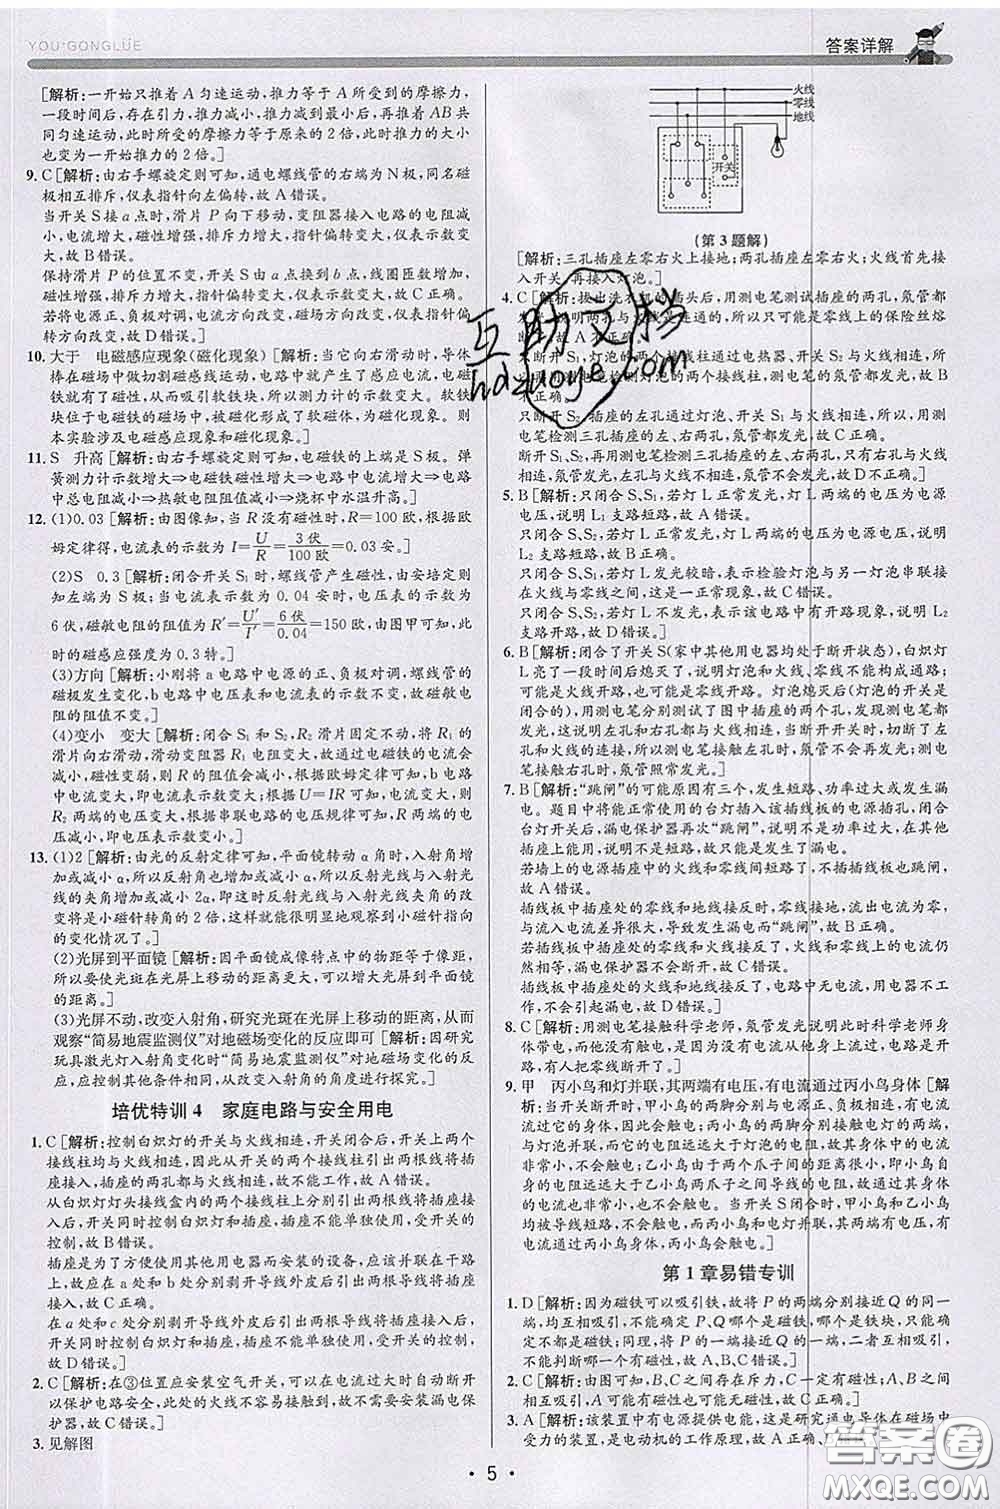 YOU·GONGLÜE
答案详解
[解析:一开始只推着A匀速运动,推力等于A所受到的摩擦力,
一段时间后,存在引力,推力减小,推力减到最小后,再推着AB共
同匀速运动,此时所受的摩擦力等于原来的2倍,此时推力的大小
也变为一开始推力的2倍。]
9. C[解析:由右手螺旋定则可知,通电螺线管的右端为N极,同名磁
极相互排斥,仪表指针向左偏转,故A错误。
当开关S接a点时,滑片P向下移动,变阻器接入电路的电阻减
小,电流增大,磁性增强,排斥力变大,指针偏转变大,仪表示数增
大,故B错误。
保持滑片P的位置不变,开关S由a点换到b点,线圈匝数增加,
磁性增强,指针偏转变大,仪表示数变大,故C正确。
若将电源正、负极对调,电流方向改变,磁场方向改变,指针偏转
方向改变,故D错误。]
10. 大于 电磁感应现象(磁化现象)[解析:当它向右滑动时,导体
棒在磁场中做切割磁感线运动,电路中就产生了感应电流,电磁
铁就有磁性,从而吸引软铁块,所以测力计的示数变大。软铁
块位于电磁铁的磁场中,被磁化形成了软磁体,为磁化现象。则
本实验涉及电磁感应现象和磁化现象。]
11. S 升高[解析:由右手螺旋定则可知,电磁铁的上端是S极。弹
簧测力计示数增大→电磁铁磁性增大→电路中电流增大→电路
中总电阻减小→热敏电阻阻值减小→烧杯中水温升高。]
12. (1)0.03[解析:由图像知,当R没有磁性时,R=100欧,根据欧
姆定律得,电流表的示数为I=U/R=3伏/100欧=0.03安。]
(2)S 0.3[解析:闭合开关S₁时,螺线管产生磁性,由安培定则
知左端为S极;当电流表的示数为0.04安时,电压表的示数为
6伏,磁敏电阻的阻值为R′=U′/I′=6伏/0.04=150欧,由图甲可知,此
时的磁感应强度为0.3特。]
(3)方向[解析:小刚将a电路中电源的正、负极对调,螺线管的
磁极发生变化,b电路中电压表和电流表的示数不变,故磁敏电
阻的阻值不变。]
(4)变小 变大[解析:闭合S₁和S₂,R₂滑片固定不动,将R₁的
滑片向右滑动,滑动变阻器R₁电阻变大,故通过电磁铁的电流会
减小,磁性变弱,则R的阻值会减小,根据欧姆定律可知,b电路
中电流变大,即电流表示数变大;根据U=IR可知,电流变大,则
R₂两端的电压变大,根据串联电路的电压规律可知,R两端的电
压减小,即电压表示数变小。]
13. (1)2[解析:由光的反射定律可知,平面镜转动α角时,入射角增
加或减小α,当然反射角也增加或减小α,因此反射光线与入射光
线的夹角增加或减小2α,即反射光线与入射光线的夹角的改变
将是小磁针转角的2倍,这样就能很明显地观察到小磁针指向
的变化情况了。]
(2)光屏到平面镜[解析:由平面镜成像特点中的物距等于像距,
所以要使光斑在光屏上移动的距离更大,可以增大光屏到平面镜
的距离。]
(3)光屏不动,改变入射角,研究光斑在光屏上移动的距离,从而
观察“简易地震监测仪”对地磁场变化的反应即可[解析:研究
玩具激光灯入射角变化时“简易地震监测仪”对地磁场变化的反
应,控制其他条件相同,从改变入射角的角度进行探究。]
培优特训4 家庭电路与安全用电
1. C[解析:控制白炽灯的开关与火线相连,开关闭合后,开关上两个
接线柱均与火线相连,因此从开关的两个接线柱引出两根导线将
插座接入后,插座的两个孔都与火线相连,故不能工作,故A错误。
从白炽灯灯头接线盒内的两个接线柱上分别引出两根线将插座
接入后,开关同时控制白炽灯和插座,插座不能单独使用,受开关的
控制,故B错误。
插座是为了方便使用其他用电器而安装的设备,应该并联在干路
上,因此,应该在a处和b处分别剥开导线外皮后引出两根导线将
插座接入,故C正确。
在a处和c处分别剥开导线外皮后引出两根导线将插座接入后,
开关同时控制白炽灯和插座,插座不能单独使用,受开关的控制,
故D错误。]
2. C[解析:在③位置应安装空气开关,可以在电流过大时自动断开
以保护电路安全,此处的火线不容易接触到,不会造成触电,
故C错误。]
3. 见解图
火线
零线
地线
开关
(第3题解)
[解析:三孔插座左零右火上接地;两孔插座左零右火;火线首先接
入开关,再接入灯泡。]
4. C[解析:拔出洗衣机的插头后,用测电笔测试插座的两孔,氖管都
发光,说明两孔与火线是连通的,所以不可能是零线的保险丝熔
断,故A不正确。
只断开S₁,灯泡的两个接线柱通过电热器、开关S₂与火线相连,所
以,用测电笔检测灯泡的两个接线柱,测电笔的氖管都发光,故B
不正确。
只断开S₂,插座的左孔通过灯泡、开关S₁与火线相连,所以,用测
电笔检测三孔插座的左、右两孔,氖管都发光,故C正确。
断开S₁、S₂,插座的左孔与火线断开,不会发光,右孔与火线
相连,氖管发光,左孔与火线不相连,氖管不发光,故D不正确。]
5. B[解析:只闭合S、S₁,若灯L正常发光,灯L两端的电压为电源
电压,说明L₁支路短路,故A错误。
只闭合S、S₂,若灯L正常发光,灯L两端的电压为电源电压,说明
L₂支路短路,故B正确。
只闭合S、S₁,若灯L发光较暗,表示检验灯光与另一灯光串联接
在火线与零线之间,这是一种正常现象,故C错误。
只闭合S、S₂,若灯L不发光,表示该电路中有开路现象,说明L₂
支路开路,故D错误。]
6. B[解析:闭合了开关S(家中其他用电器均处于断开状态),白炽灯
L亮了一段时间后熄灭了,说明灯泡与火线、零线不能构成通路;
可能是火线开路,也可能是零线开路。灯泡熄灭后(灯泡的开关是
闭合的),用测电笔分别测试了图中插座的两个孔,发现测电笔都
发光,这说明左孔和右孔都与火线相通,当断开开关时,只断开了
左孔与火线的连接,当测电笔接触左孔时,氖管应不发光;而测电
笔接触右孔时,氖管照常发光。]
7. B[解析:“跳闸”的原因可能有三个,发生短路、功率过大、发生漏
电。题目中将能正常使用的台灯插入该插线板的电源插孔,闭合
台灯开关后,漏电保护器再次“跳闸”,说明不是功率过大,也不是
短路,而是发生了漏电。
若墙上的插座中的火线和零线接反了,不插插线板也会跳闸,
故A错误。
插线板中插座处的零线和地线接反时,零线接地,由于火线电流
与流入大地电流差异很大,导致了“跳闸”,故B正确。
若插线板中插座处的零线和火线接反了,火线和零线的电流仍
然相等,漏电保护器不会“跳闸”,故C错误。
插线板中插座处的火线和地线接反了,没有零线,用电器不工作,
不会引起漏电,故D错误。]
8. C[解析:用测电笔接触科学老师,氖管发光说明此时科学老师
身体带电,而他没有触电,是因为没有电流从他身上流过,说明电
路有开路,只有人接触了火线。]
9. 甲 丙小鸟和灯并联,其两端有电压,有电流通过丙小鸟身体[解
析:由题图可知,甲小鸟的两个爪子分别接触火线和零线,有电
流过它,其会触电;丙小鸟和灯并联,电灯两端有电压,有电流流过,
但由于丙小鸟的电阻远大于灯泡的电阻,故其身体中的电流
与灯泡并联,而它的电阻远远大于灯泡的电阻,因此它的电流
非常小,不会触电;乙小鸟由于两个爪子间的导线电阻非常小,与
自身的电阻相差很大,即乙小鸟两爪子之间导线的电压非常小,它
的电流也非常小,不会触电。当开关S闭合时,甲小鸟和乙小鸟
均被导线短路,不会触电,而丙小鸟和电灯并联,其两端有电压,有
电流通过丙小鸟身体,丙小鸟会触电。]
第1章易错专训
1. D[解析:因为磁铁可以吸引铁,故将P的两端分别接近Q的同一
端,均互相吸引,不能确定P、Q哪个是磁铁,哪个是铁块,只能
确定不都是磁铁;同理,将P的一端接近Q的一端,二者互相吸引,
不能判断哪一个有磁性,故A、B、C错误。]
2. B[解析:a、b、c、d之间存在斥力,a、d一定有磁性,
相互吸引,则c可能有磁性,也可能无磁性,故B正确。]
3. A[解析:该装置中有电源提供电能,这是研究通电导线在磁场中
受力的装置,是电动机的工作原理,故A正确、
· 5 ·
互助文档
hdzuoye.com
答案圈
MXQE.COM